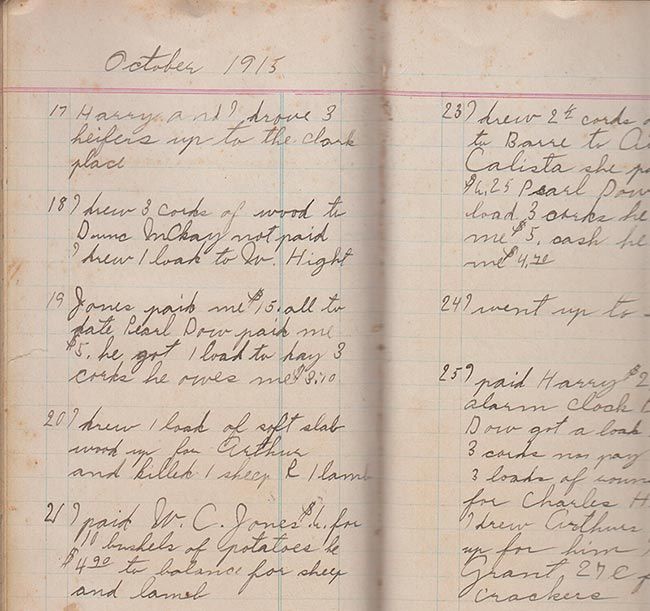 October 1915
17 Harry and I drove 3
heifers up to the Clark
place
18 I drew 3 cords of wood to
Dunc McKay not paid
I drew 1 load to W. Hight
19 Jones paid me $15. all to
date Pearl Dow paid me
$5. he got 1 load to day 3
cords he owes me $3.70
20 I drew 1 load of soft slab
wood up for Arthur
and killed 1 sheep & 1 lamb
21 I paid W. C. Jones $6. for
10 bushels of potatoes he
$4.90 to balance for sheep
and lamb
23 I drew 2 ½ cords
to Barre to
Calista she
$6.25 Pearl Dow
load 3 cords he
me $5. cash he
me $4.70
24 I went up to
25 I paid Harry $2
alarm clock
Dow got a load
3 cords no pay
3 loads of
for Charles H
I drew Arthurs
up for him
Grant 27 c
crackers